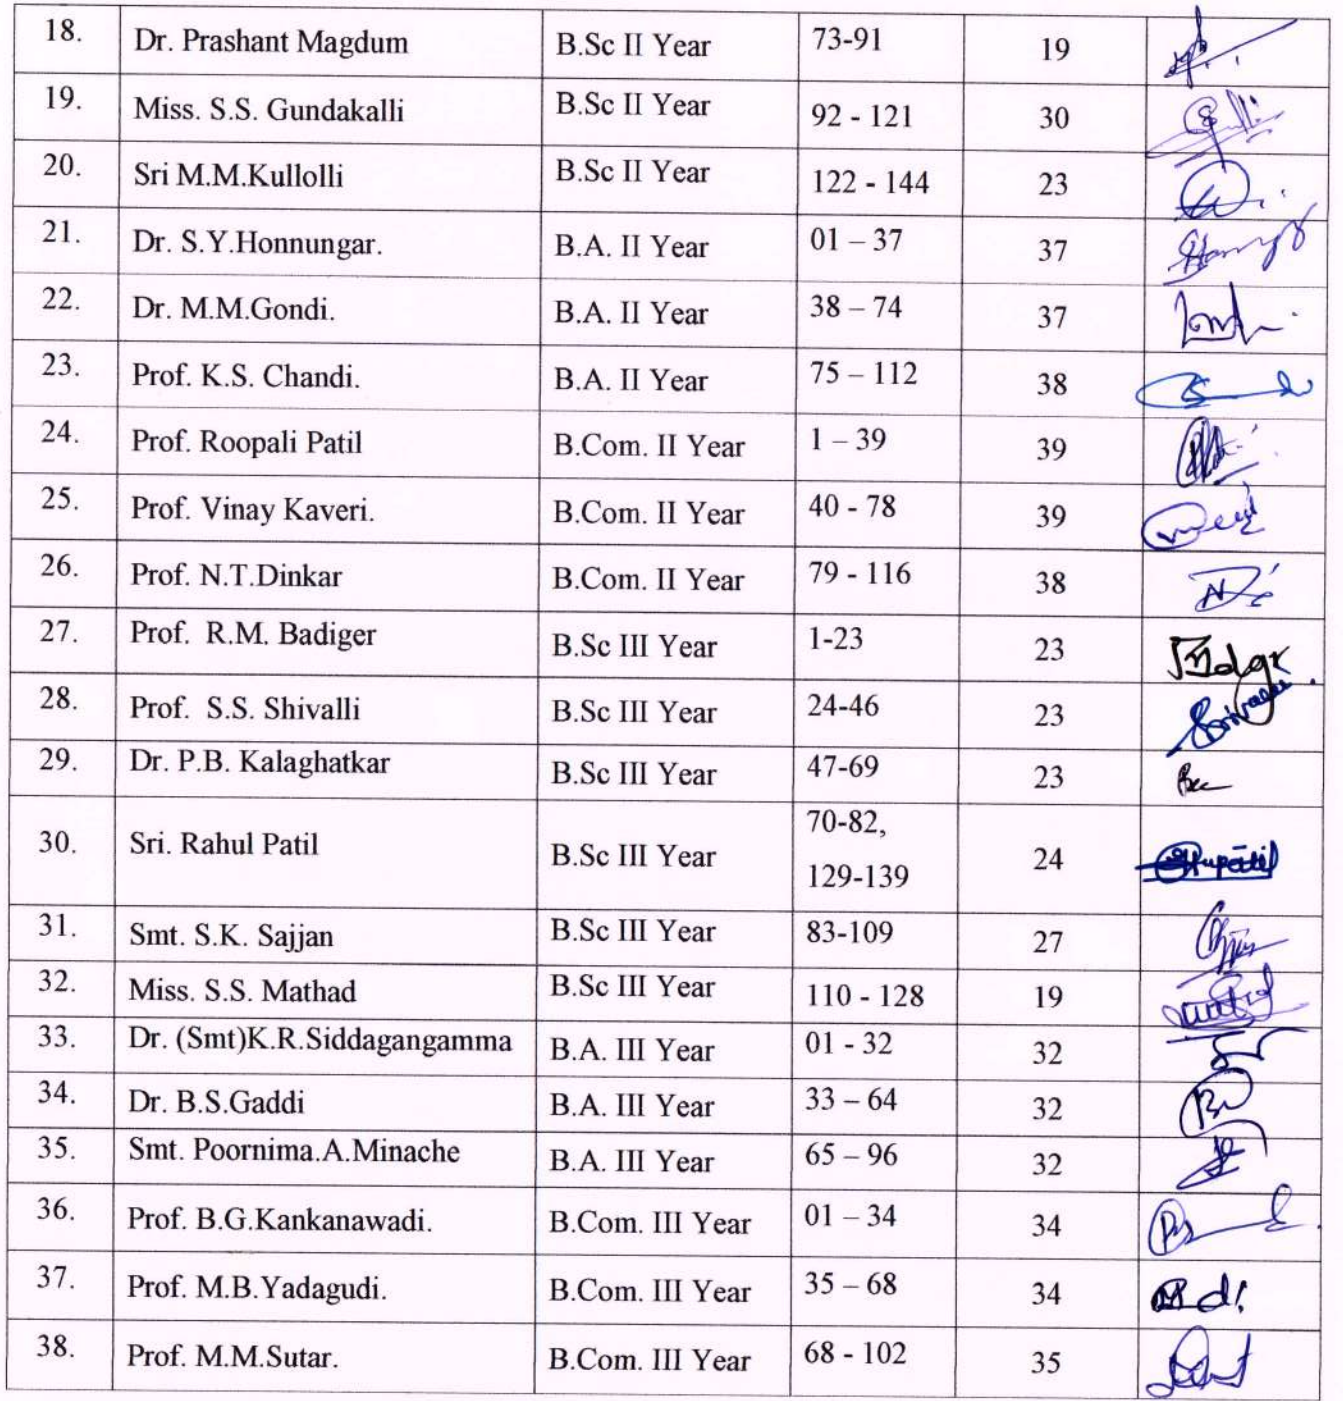 18. Dr. Prashant Magdum B.Sc II Year 73-91 19
19. Miss. S.S. Gundakalli B.Sc II Year 92 - 121 30
20. Sri M.M.Kullolli B.Sc II Year 122 - 144 23
21. Dr. S.Y.Honnungar. B.A. II Year 01 – 37 37
22. Dr. M.M.Gondi. B.A. II Year 38 – 74 37
23. Prof. K.S. Chandi. B.A. II Year 75 – 112 38
24. Prof. Roopali Patil B.Com. II Year 1 – 39 39
25. Prof. Vinay Kaveri. B.Com. II Year 40 - 78 39
26. Prof. N.T.Dinkar B.Com. II Year 79 - 116 38
27. Prof. R.M. Badiger B.Sc III Year 1-23 23
28. Prof. S.S. Shivalli B.Sc III Year 24-46 23
29. Dr. P.B. Kalaghatkar B.Sc III Year 47-69 23
30. Sri. Rahul Patil B.Sc III Year 70-82, 24
129-139
31. Smt. S.K. Sajjan B.Sc III Year 83-109 27
32. Miss. S.S. Mathad B.Sc III Year 110 - 128 19
33. Dr. (Smt)K.R.Siddagangamma B.A. III Year 01 - 32 32
34. Dr. B.S.Gaddi B.A. III Year 33 – 64 32
35. Smt. Poornima.A.Minache B.A. III Year 65 – 96 32
36. Prof. B.G.Kankanawadi. B.Com. III Year 01 – 34 34
37. Prof. M.B.Yadagudi. B.Com. III Year 35 – 68 34
38. Prof. M.M.Sutar. B.Com. III Year 68 - 102 35